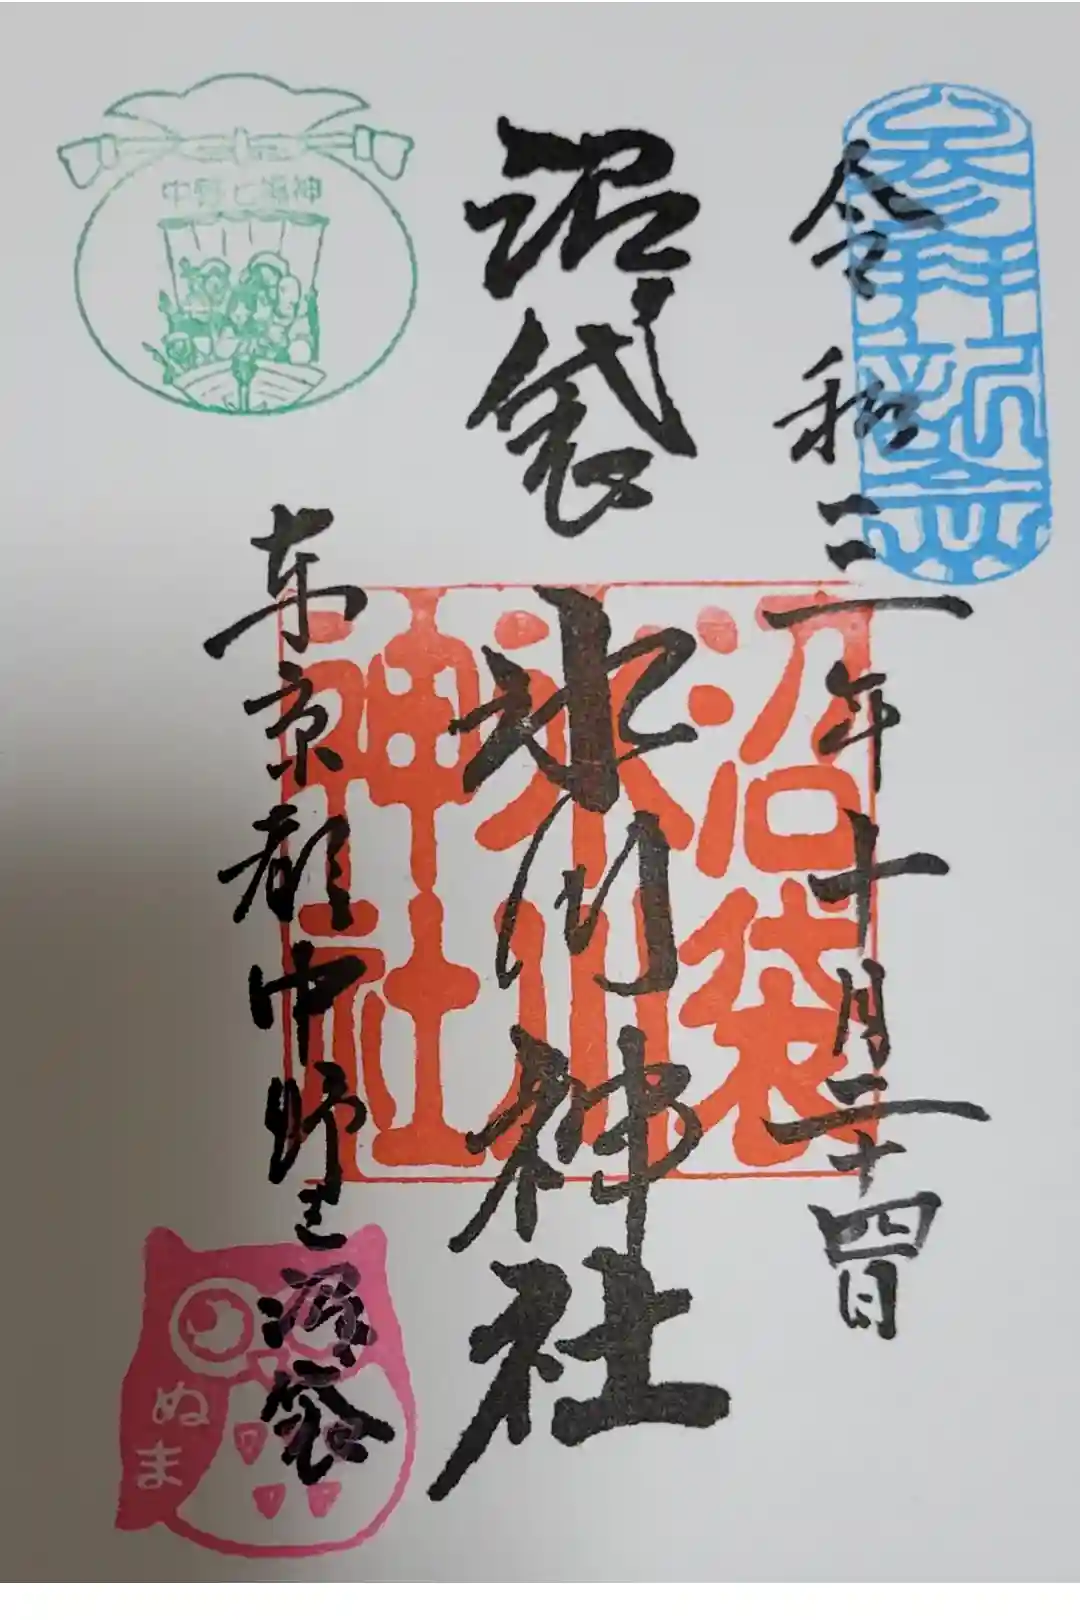 参拝
令和三年十月二十四日
沼袋
氷川神社
沼袋
氷川
神社
東京都中野区沼袋
中野七福神
ぬま